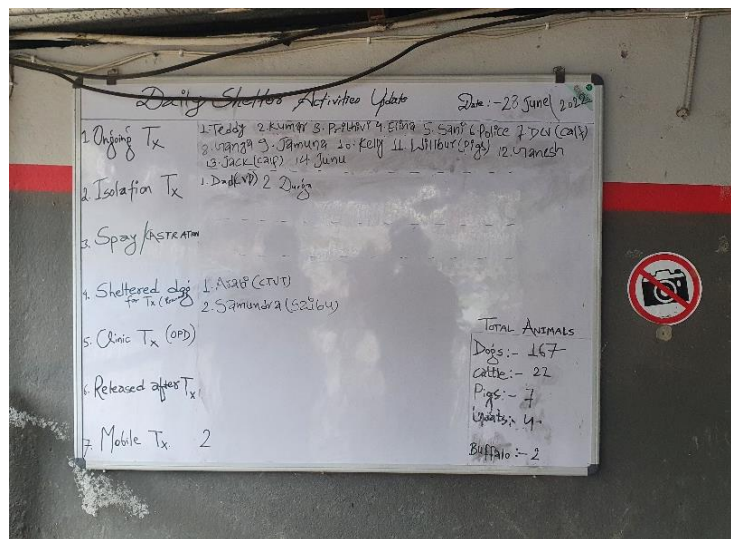 Daily Shelter Activities Update Date:-23 June 2022
1. Ongoing Tx 1. Teddy 2 Kumar 3. Prithivi 4. Elina 5. Sani 6. Police 7 DCN (calf)
8. Ganga 9. Jamuna 10. Kely 11 Willbur (pigs) 12. Ganesh
13. Jack (calf) 14 Junu
2. Isolation Tx 1. Dad (VD) 2 Durga
3. Spray / CASTRATION
4. Sheltered dog 1. Asabi (CTVT)
for Tx 2. Samundra (Saibu)
5. Clinic Tx (OPD)
6. Released after Tx
7. Mobile Tx. 2
TOTAL ANIMALS
Dogs:- 167
cattle:- 22
Pigs:- 7
Goats:- 4
Buffalo:- 2